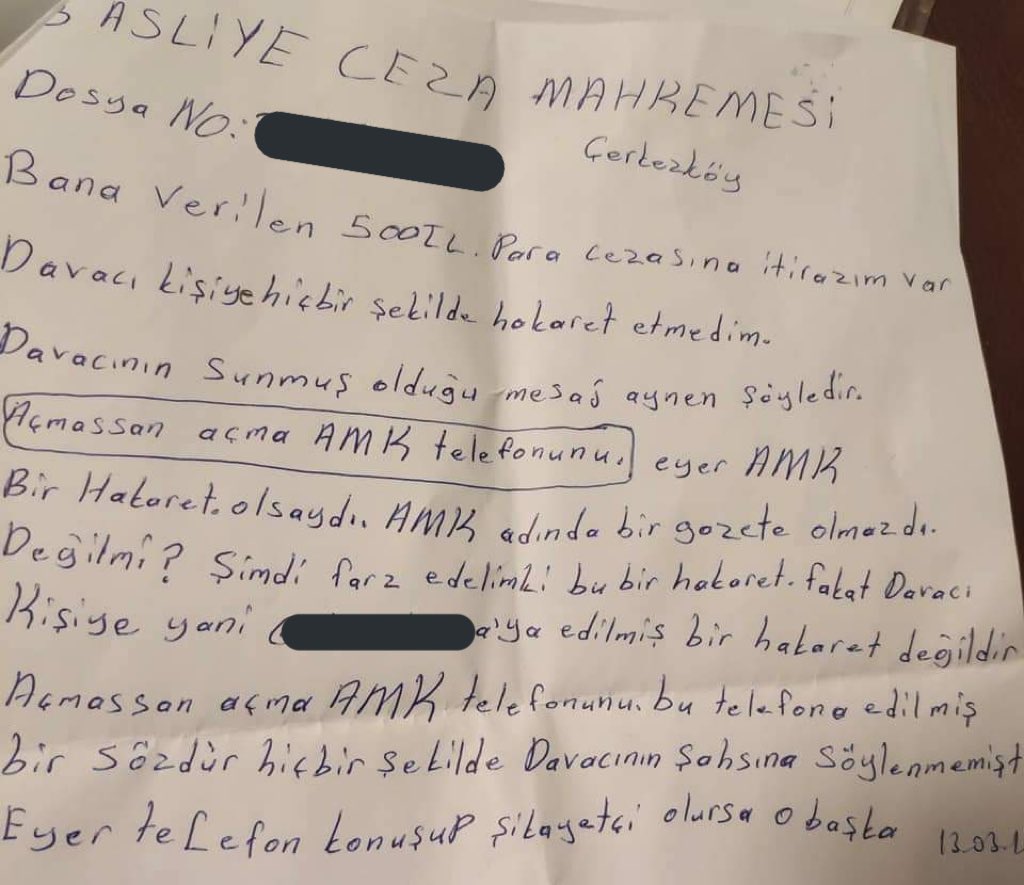 3 ASLİYE CEZA MAHKEMESİ
Dosya NO:
Çerkezköy
Bana Verilen 500TL. Para cezasına itirazım var
Davacı kişiye hiçbir şekilde hakaret etmedim.
Davacının Sunmuş olduğu mesaj aynen şöyledir.
Açmassan açma AMK telefonunu. eyer AMK
Bir Hakaret. olsaydı. AMK adında bir gazete olmazdı.
Değilmi? Şimdi farz edelimki bu bir hakaret. fakat Davacı
Kişiye yani a'ya edilmiş bir hakaret değildir
Açmassan açma AMK telefonunu. bu telefona edilmiş
bir Sözdür hiçbir şekilde Davacının Şahsına Söylenmemişt
Eyer telefon konuşup şikayetçi olursa o başka
13.03.1